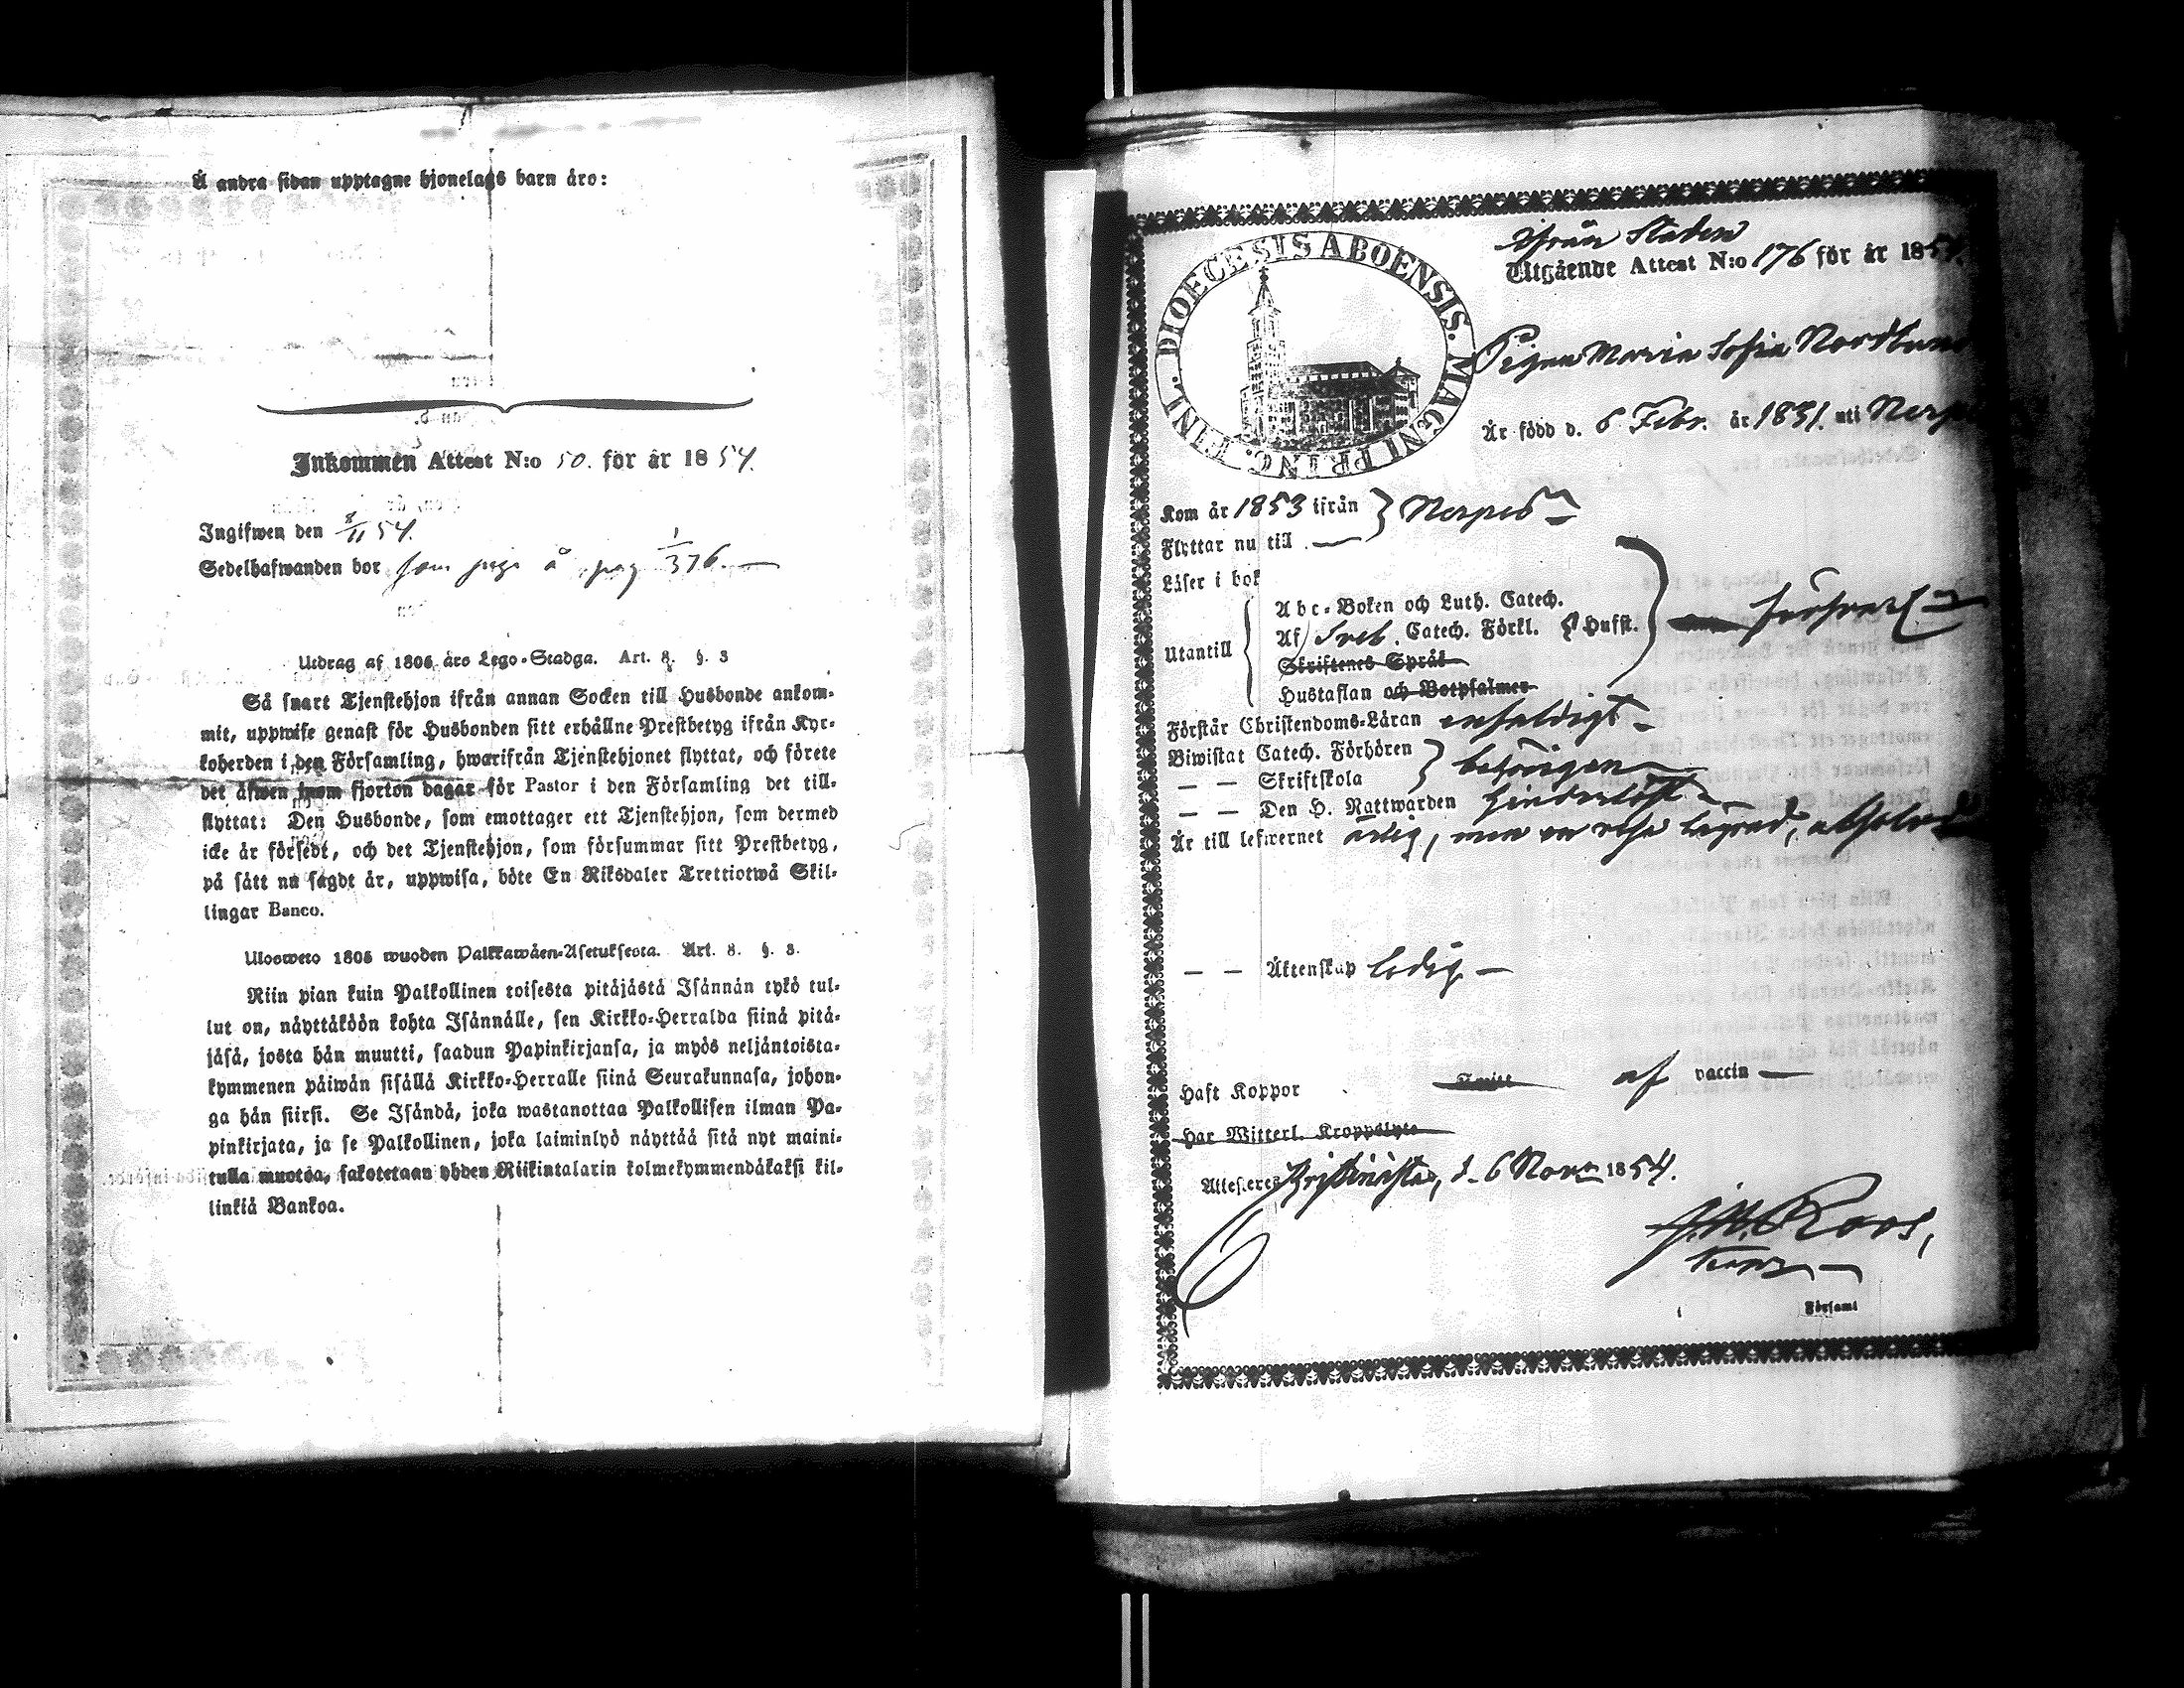 Å andra sidan upptagne hjonelags barn äro:
Inkommen Attest N:o 50. för år 1854.
Ingifwen den 8/11 54.
Sedelhafwanden bor som piga å pag 1/376.
Utdrag af 1805 års Lego-Stadga. Art. 8. §. 3
Så snart Tjenstehjon ifrån annan Socken till Husbonde ankom-
mit, uppwise genast för Husbonden sitt erhållne Prestbetyg ifrån Kyr-
koherden i den Församling, hwarifrån Tjenstehjonet flyttat, och förete
det äfwen inom fjorton dagar för Pastor i den Församling det till-
flyttat: Den Husbonde, som emottager ett Tjenstehjon, som dermed
icke är försedt, och det Tjenstehjon, som försummar sitt Prestbetyg,
på sätt nu sagdt är, uppwisa, böte En Riksdaler Trettiotwå Skil-
lingar Banco.
Ulosweto 1805 wuoden Palkkawäen-Asetuksesta. Art. 8. §. 3.
Niin pian kuin Palkollinen toisesta pitäjästä Isännän tykö tul-
lut on, näyttäköön kohta Isännälle, sen Kirkko-Herralda siinä pitä-
jäsä, josta hän muutti, saadun Papinkirjansa, ja myös neljäntoista-
kymmenen päiwän sisällä Kirkko-Herralle siinä Seurakunnasa, johon-
ga hän siirsi. Se Isändä, joka wastanottaa Palkollisen ilman Pa-
pinkirjata, ja se Palkollinen, joka laiminlyö näyttää sitä nyt maini-
tulla muotoa, sakotetaan yhden Riikintalarin kolmekymmendäkaksi kil-
linkiä Bankoa.
DIOECESIS ABOENSIS. MAGNI PRINC. FINL.
Ifrån Staden
Utgående Attest N:o 176 för år 1854.
Pigan Maria Sofia Nordlund
Är född d. 6 Febr. år 1831. uti Nerpes
Kom år 1853 ifrån } Nerpes
Flyttar nu till
Läser i bok
Utantill
Abc-Boken och Luth. Catech.
Af Sveb. Catech. Förkl. Hufst.
Skriftenes Språk
Hustaflan och Botpsalmer
försvarl.
Förstår Christendoms-Läran enfaldigt
Biwistat Catech. Förhören } behörigen
— — Skriftskola
— — Den H. Nattwarden hinderlöst
Är till lefwernet ärlig, men en resa lägrad, absolverad
— — Äktenskap ledig
Haft Koppor af vaccin
Har Witterl. Kroppslyte
Attesteras Kristinestad, d. 6 Nov. 1854.
Roos,
Församl